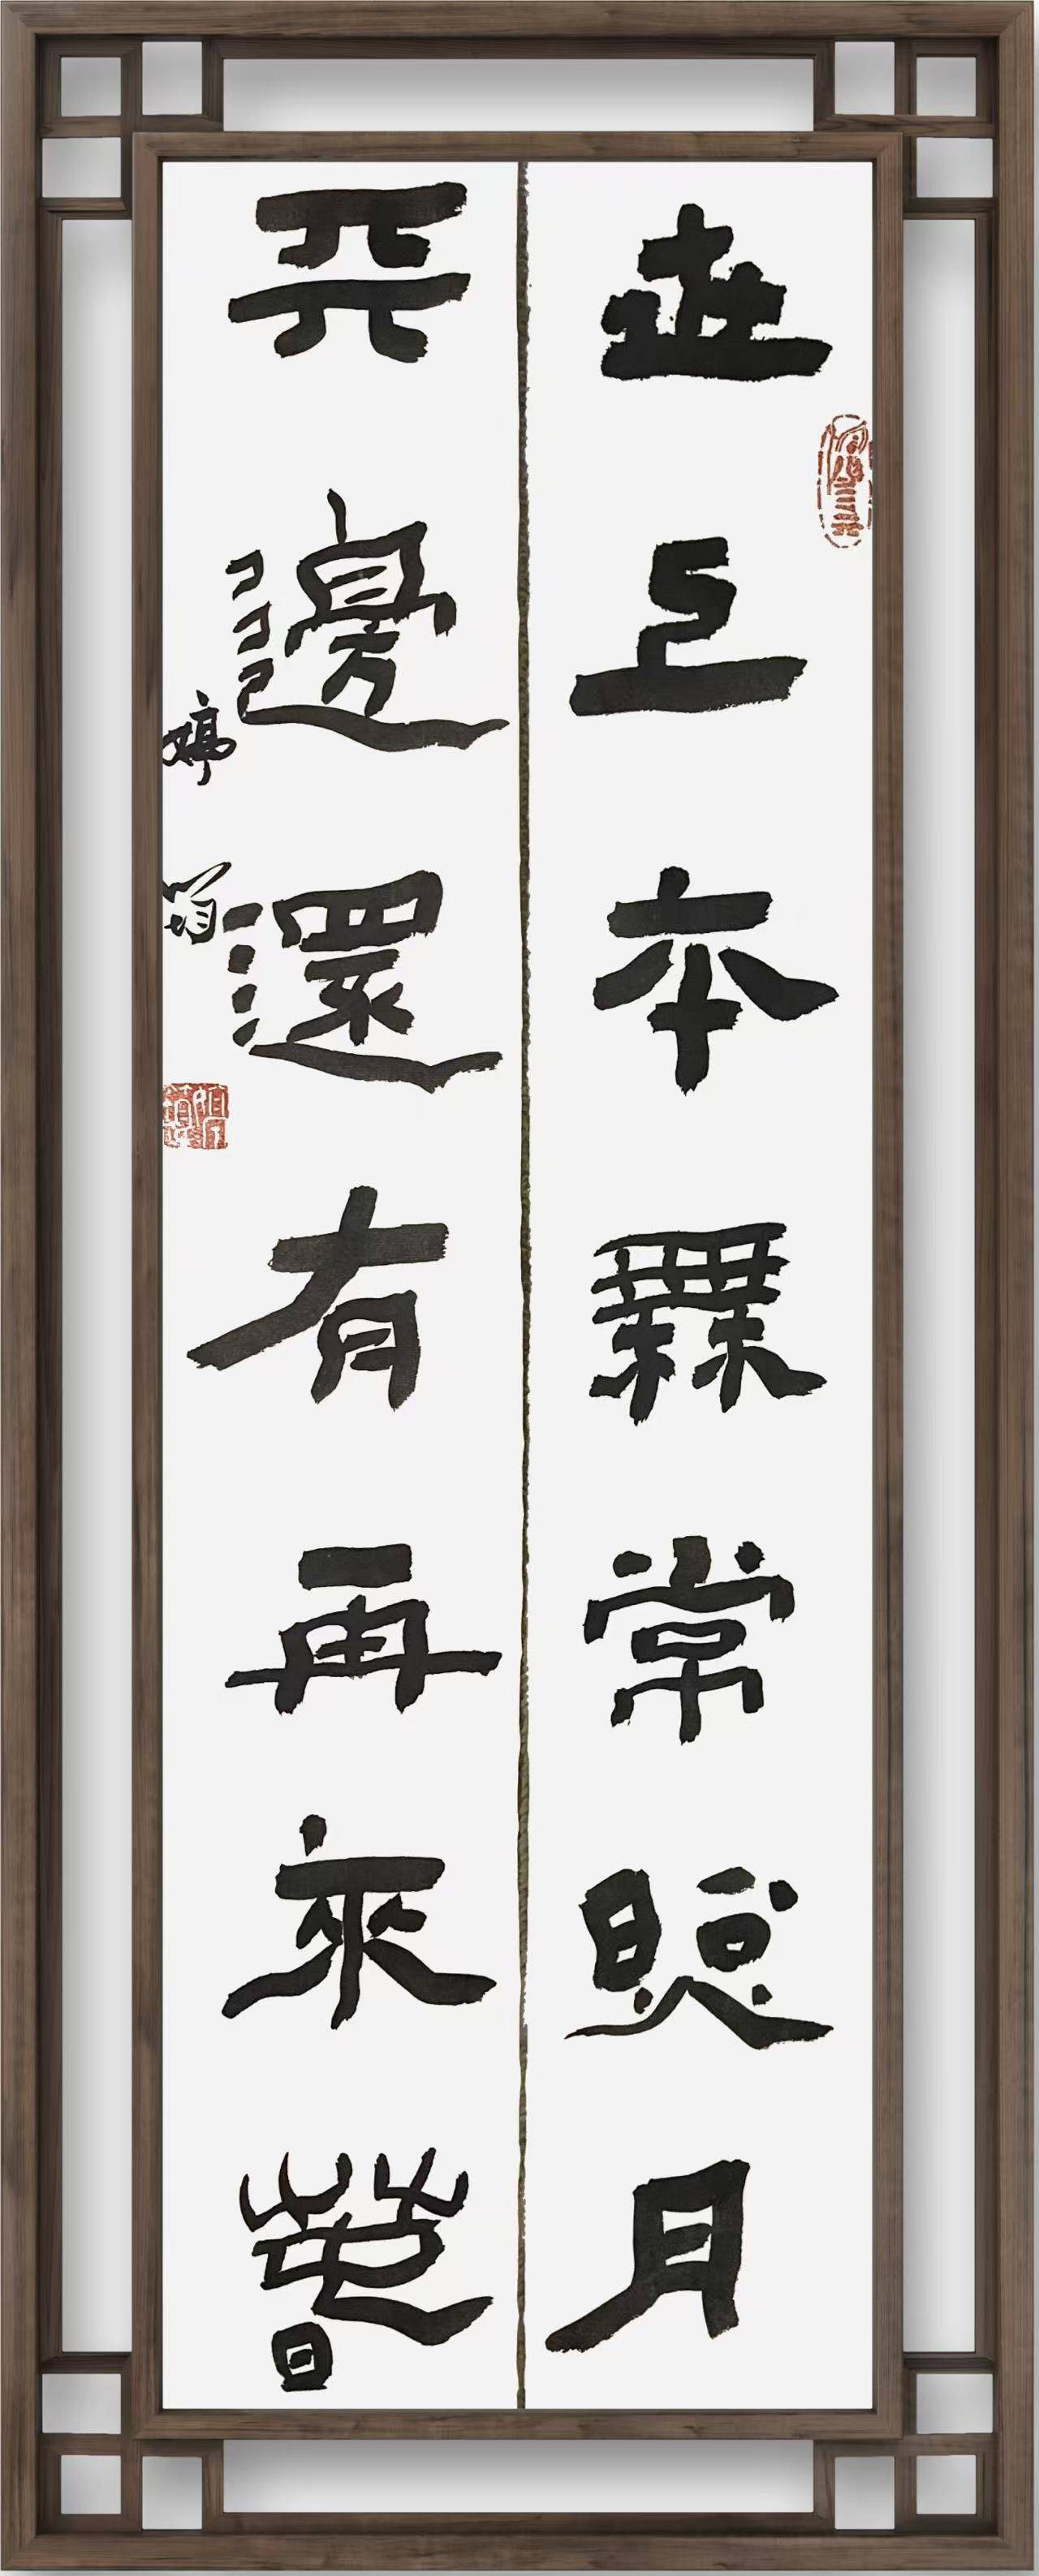 世上本無常照月
天邊還有再來春
婷